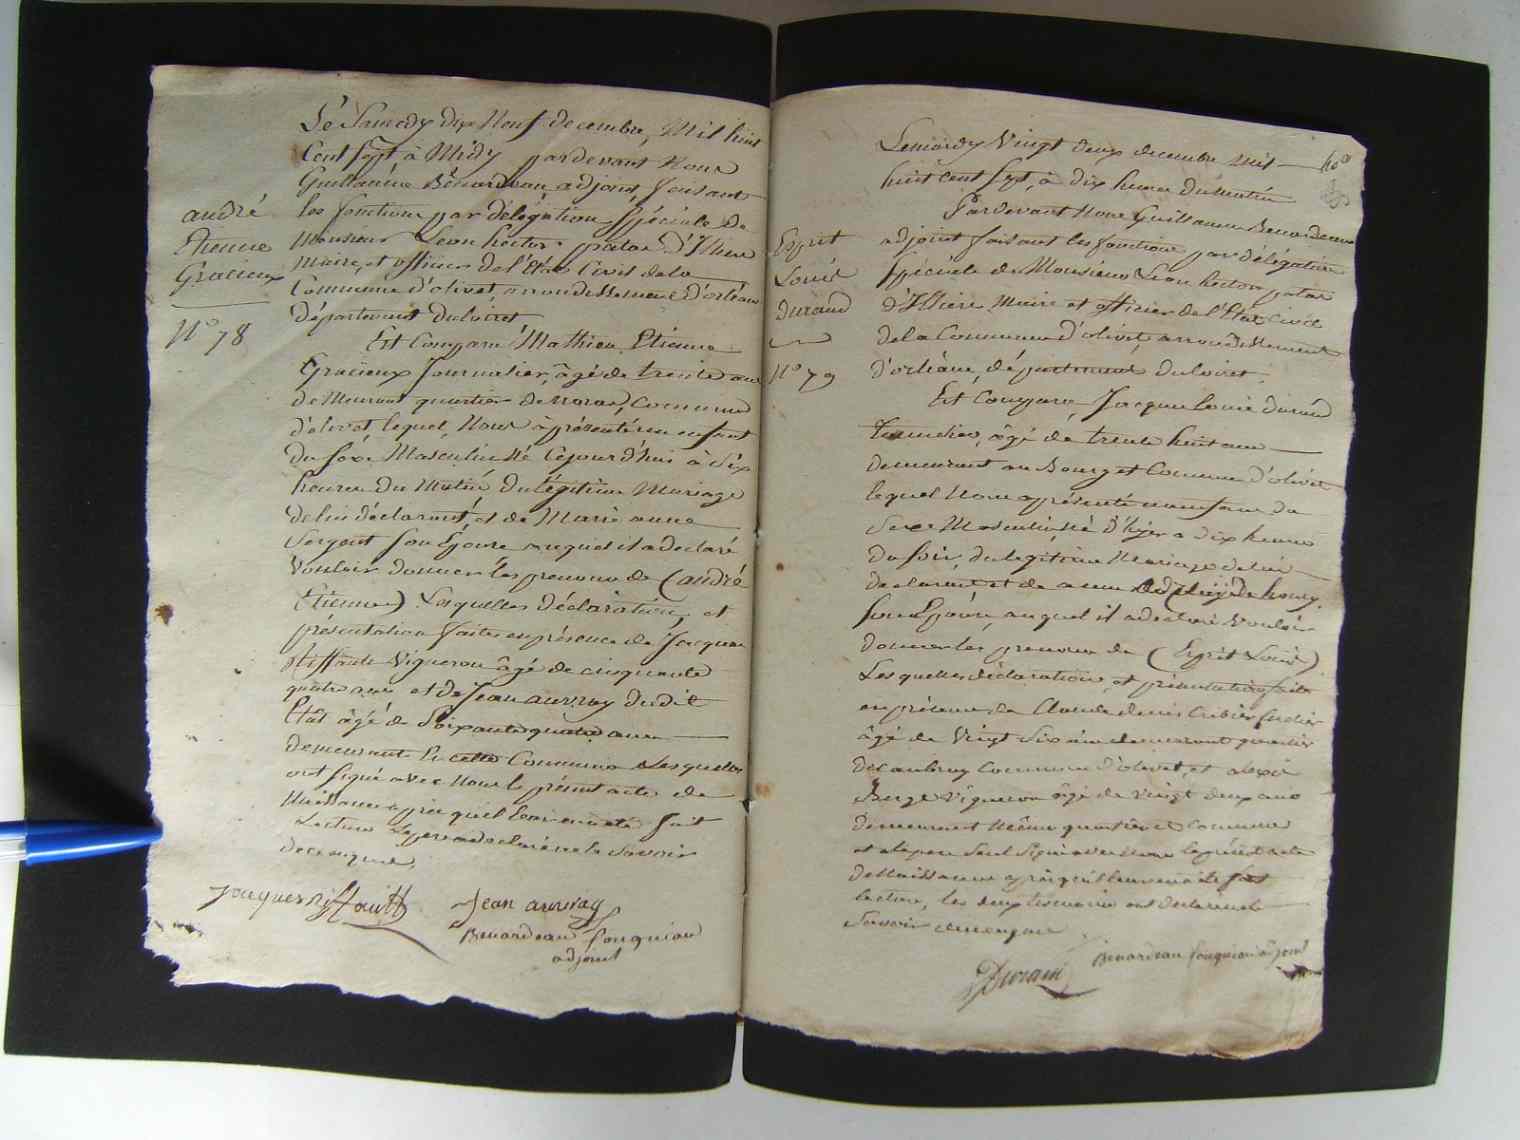 andré
Etienne
Gracieux
N° 78
Le Samedy dix Neuf decembre, Mil huit
Cent Sept à Midy pardevant Nous
Guillaume Bénardeau adjoint faisant
les fonctions par délégation Spéciale de
Monsieur Leon hector patas d'Illiers
Maire, et officier de l'Etat Civil de la
Commune d'olivet, arrondissement d'orléans
département du loiret
Est Comparu Mathieu Etienne
Gracieux Journalier, âgé de trente ans
demeurant quartier de Commune
d'olivet lequel Nous à présenté un enfant
du Sexe Masculin Né Cejourd'hui à Six
heures du Matin du légitime Mariage
de lui déclarant, et de Marie anne
Sergent Son Epouse auquel il a declaré
Vouloir donner les prenoms de (andré
Etienne) Lesquelles déclaration, et
présentation faites en présence de Jacques
Riffault Vigneron âgé de cinquante
quatre ans et de Jean auvray dudit
Etat âgé de Soixante quatre ans
demeurant En cette Commune Lesquels
ont Signé avec Nous le présent acte de
Naissance après qu'il leur en a été fait
Lecture Le pere a declaré ne le Savoir
de ce enquis
Jacques Riffault Jean auvray
Benardeau fouqueau
adjoint
Esprit
Louis
durand
N° 79
Le mardy Vingt deux decembre mil
huit Cent Sept, à dix heures du matin
Pardevant Nous Guillaume Benardeau
adjoint faisant les fonctions par délégation
Spéciale de Monsieur Leon hector patas
d'Illiers Maire et officier de l'Etat Civil
de la Commune d'olivet, arrondissement
d'orléans, département du loiret.
Est Comparu Jacques Louis durand
âgé de trente huit ans
demeurant au Bourg et Commune d'olivet
lequel Nous a présenté un enfant du
Sexe Masculin, Né d'hier a dix heures
du Soir, du legitime Mariage de lui
declarant et de anne
Son Epouse, auquel il a declaré Vouloir
donner les prenoms de (Esprit Louis)
Lesquelles déclaration, et présentation faites
en présence de Claude denis Cribier
âgé de Vingt Six ans demeurant quartier
de Commune d'olivet, et alexis
Berge Vigneron âgé de vingt deux ans
demeurant même quartier et Commune
et le pere Seul Signé avec Nous le présent acte
de Naissance après qu'il leur en a été fait
lecture, les deux temoins ont declaré ne le
Savoir de ce enquis
Durand Benardeau fouqueau adjoint